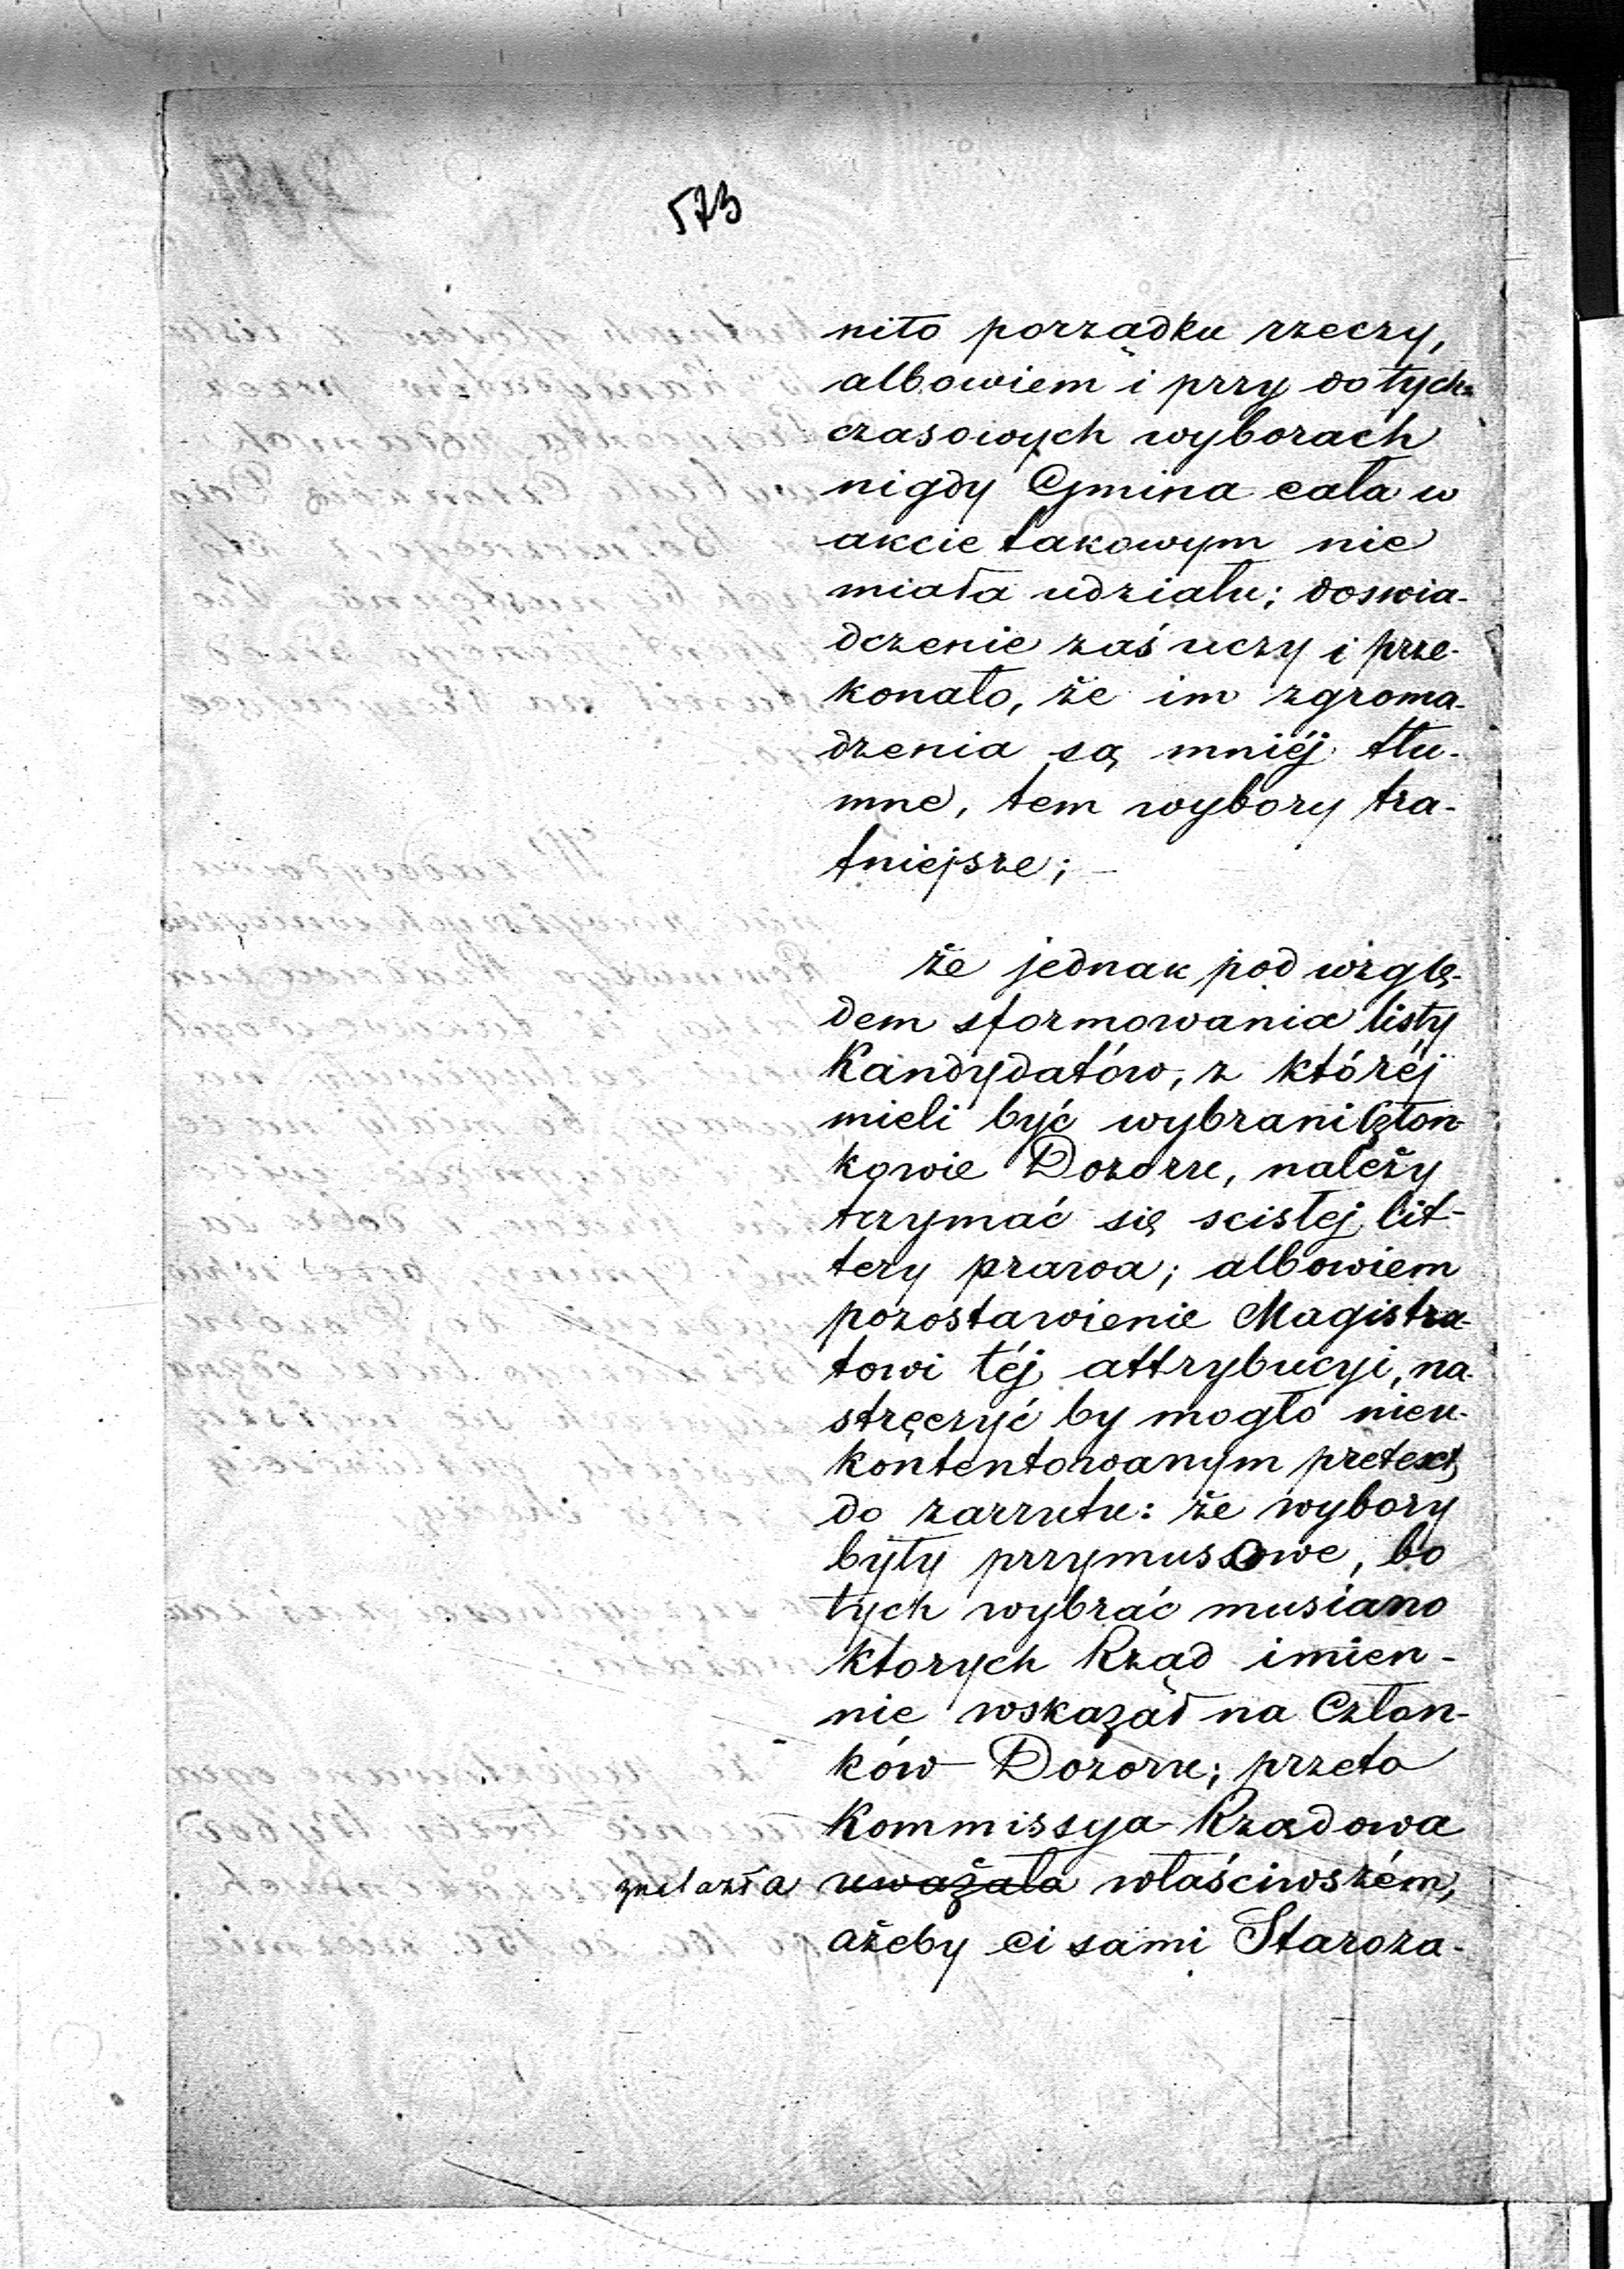 573
nito porządku rzeczy,
albowiem i przy dotych=
czasowych wyborach
nigdy Gmina cała w
akcie takowym nie
miała udziału; doswia-
dczenie zaś uczy i prze-
konało, że im zgroma-
dzenia są mniéj tłu-
mne, tem wybory tra-
fniejsze; –
że jednak pod wzglę-
dem sformowania listy
Kandydatów, z któréj
mieli być wybrani Człon-
kowie Dozoru, należy
trzymać się scisłej lit-
tery prawa; albowiem
pozostawienie Magistra-
towi téj attrybucyi, na-
stręczyć by mogło nieu-
kontentowanym pretext
do zarzutu: że wybory
były przymusowe, bo
tych wybrać musiano
ktorych Rząd imien-
nie wskazał na Człon-
ków Dozoru; przeto
Kommissya Rządowa
znalazła uważała właściwszém,
ażeby ci sami Staroza-